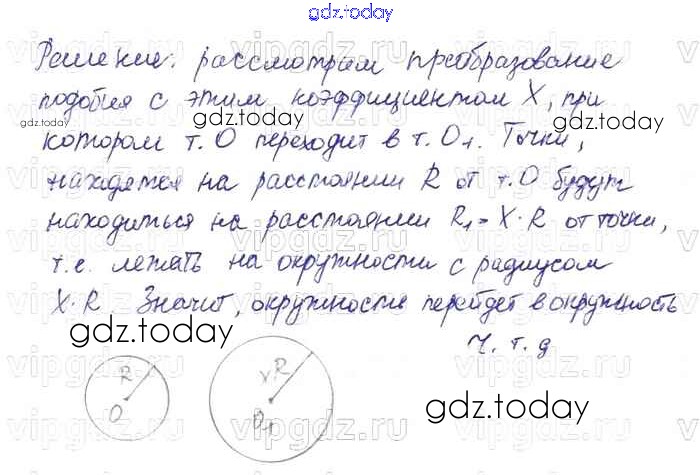 gdz.today
Решение: рассмотрим преобразование
подобия с этим коэффициентом X, при
gdz.today
gdz.today
котором т. О переходит в т. О₁. Точки,
находятся на расстоянии R от т. О будут
находиться на расстоянии R₁ = X·R от точки,
т.е. лежать на окружности с радиусом
X·R. Значит, окружность перейдет в окружность
gdz.today
ч.т.д
R
О
х·R
О₁
gdz.today